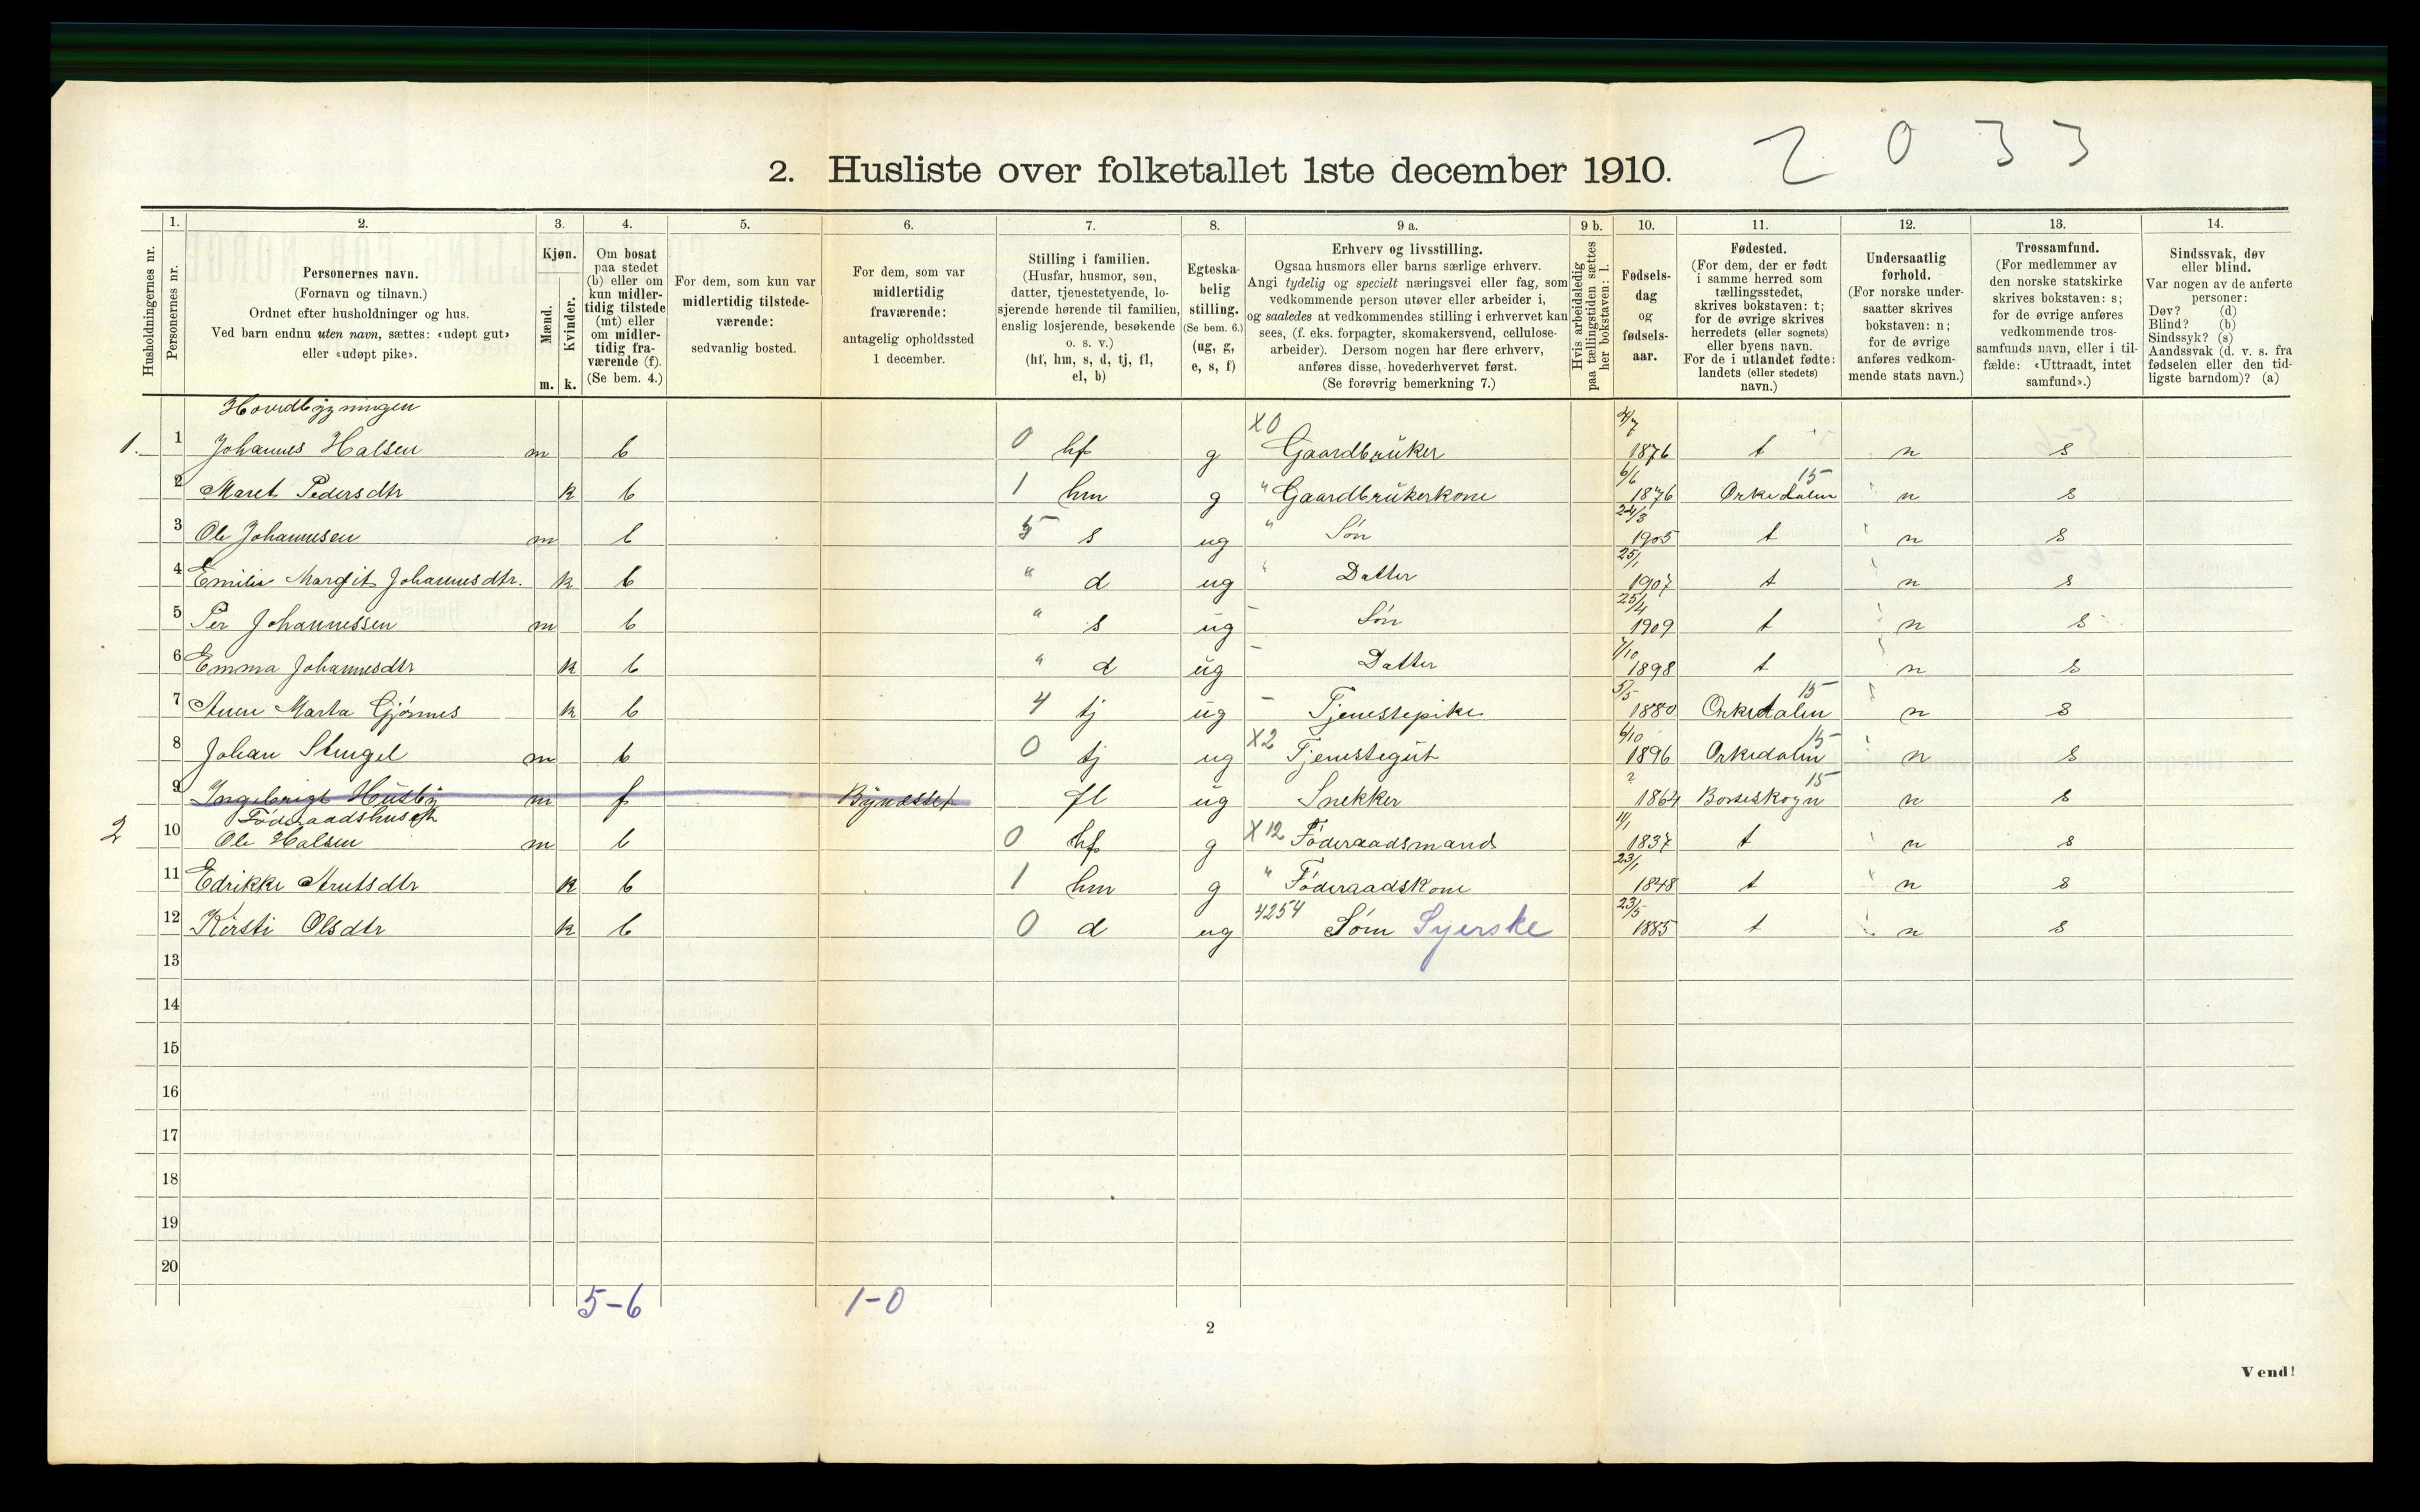 2 0 3 3
2. Husliste over folketallet 1ste december 1910.
1. 2. 3. 4. 5. 6. 7. 8. 9 a. 9 b. 10. 11. 12. 13. 14.
Husholdningernes nr.
Personernes nr.
Personernes navn.
(Fornavn og tilnavn.)
Ordnet efter husholdninger og hus.
Ved barn endnu uten navn, sættes: «udøpt gut»
eller «udøpt pike».
Kjøn.
Mænd.
Kvinder.
m. k.
Om bosat
paa stedet
(b) eller om
kun midler-
tidig tilstede
(mt) eller
om midler-
tidig fra-
værende (f).
(Se bem. 4.)
For dem, som kun var
midlertidig tilstede-
værende:
sedvanlig bosted.
For dem, som var
midlertidig
fraværende:
antagelig opholdssted
1 december.
Stilling i familien.
(Husfar, husmor, søn,
datter, tjenestetyende, lo-
sjerende hørende til familien,
enslig losjerende, besøkende
o. s. v.)
(hf, hm, s, d, tj, fl,
el, b)
Egteska-
belig
stilling.
(Se bem. 6.)
(ug, g,
e, s, f)
Erhverv og livsstilling.
Ogsaa husmors eller barns særlige erhverv.
Angi tydelig og specielt næringsvei eller fag, som
vedkommende person utøver eller arbeider i,
og saaledes at vedkommendes stilling i erhvervet kan
sees, (f. eks. forpagter, skomakersvend, cellulose-
arbeider). Dersom nogen har flere erhverv,
anføres disse, hovederhvervet først.
(Se forøvrig bemerkning 7.)
Hvis arbeidsledig
paa tællingstiden sættes
her bokstaven: l.
Fødsels-
dag
og
fødsels-
aar.
Fødested.
(For dem, der er født
i samme herred som
tællingsstedet,
skrives bokstaven: t;
for de øvrige skrives
herredets (eller sognets)
eller byens navn.
For de i utlandet fødte:
landets (eller stedets)
navn.)
Undersaatlig
forhold.
(For norske under-
saatter skrives
bokstaven: n;
for de øvrige
anføres vedkom-
mende stats navn.)
Trossamfund.
(For medlemmer av
den norske statskirke
skrives bokstaven: s;
for de øvrige anføres
vedkommende tros-
samfunds navn, eller i til-
fælde: «Uttraadt, intet
samfund».)
Sindssvak, døv
eller blind.
Var nogen av de anførte
personer:
Døv? (d)
Blind? (b)
Sindssyk? (s)
Aandssvak (d. v. s. fra
fødselen eller den tid-
ligste barndom)? (a)
Hovedbygningen
1. 1 Johannes Halsen m b 0 hf g X0 Gaardbruker 4/7 1876 t n s
2 Maret Pedersdtr k b 1 hm g " Gaardbrukerkone 6/6 1876 Orkedalen 15 n s
3 Ole Johannesen m b 5 s ug " Søn 24/3 1905 t n s
4 Emilie Margit Johannesdtr. k b " d ug " Datter 25/1 1907 t n s
5 Per Johannessen m b " s ug - Søn 25/4 1909 t n s
6 Emma Johannesdtr k b " d ug - Datter 7/10 1898 t n s
7 Anne Marta Gjønnes k b 4 tj ug - Tjenestepike 5/5 1880 Orkedalen 15 n s
8 Johan Stengel m b 0 tj ug X2 Tjenestegut 6/10 1896 Orkedalen 15 n s
9 Ingebrigt Husby m f Bynesset fl ug Snekker ? 1864 Borseskogn 15 n s
Föderaadshuset
2 10 Ole Halsen m b 0 hf g X12 Föderaadsmand 11/1 1837 t n s
11 Edrikke Arntsdtr k b 1 hm g " Föderaadskone 23/1 1848 t n s
12 Kirsti Olsdtr k b 0 d ug 4254 Søm Syerske 23/5 1885 t n s
13
14
15
16
17
18
19
20
5-6 1-0
2
Vend!